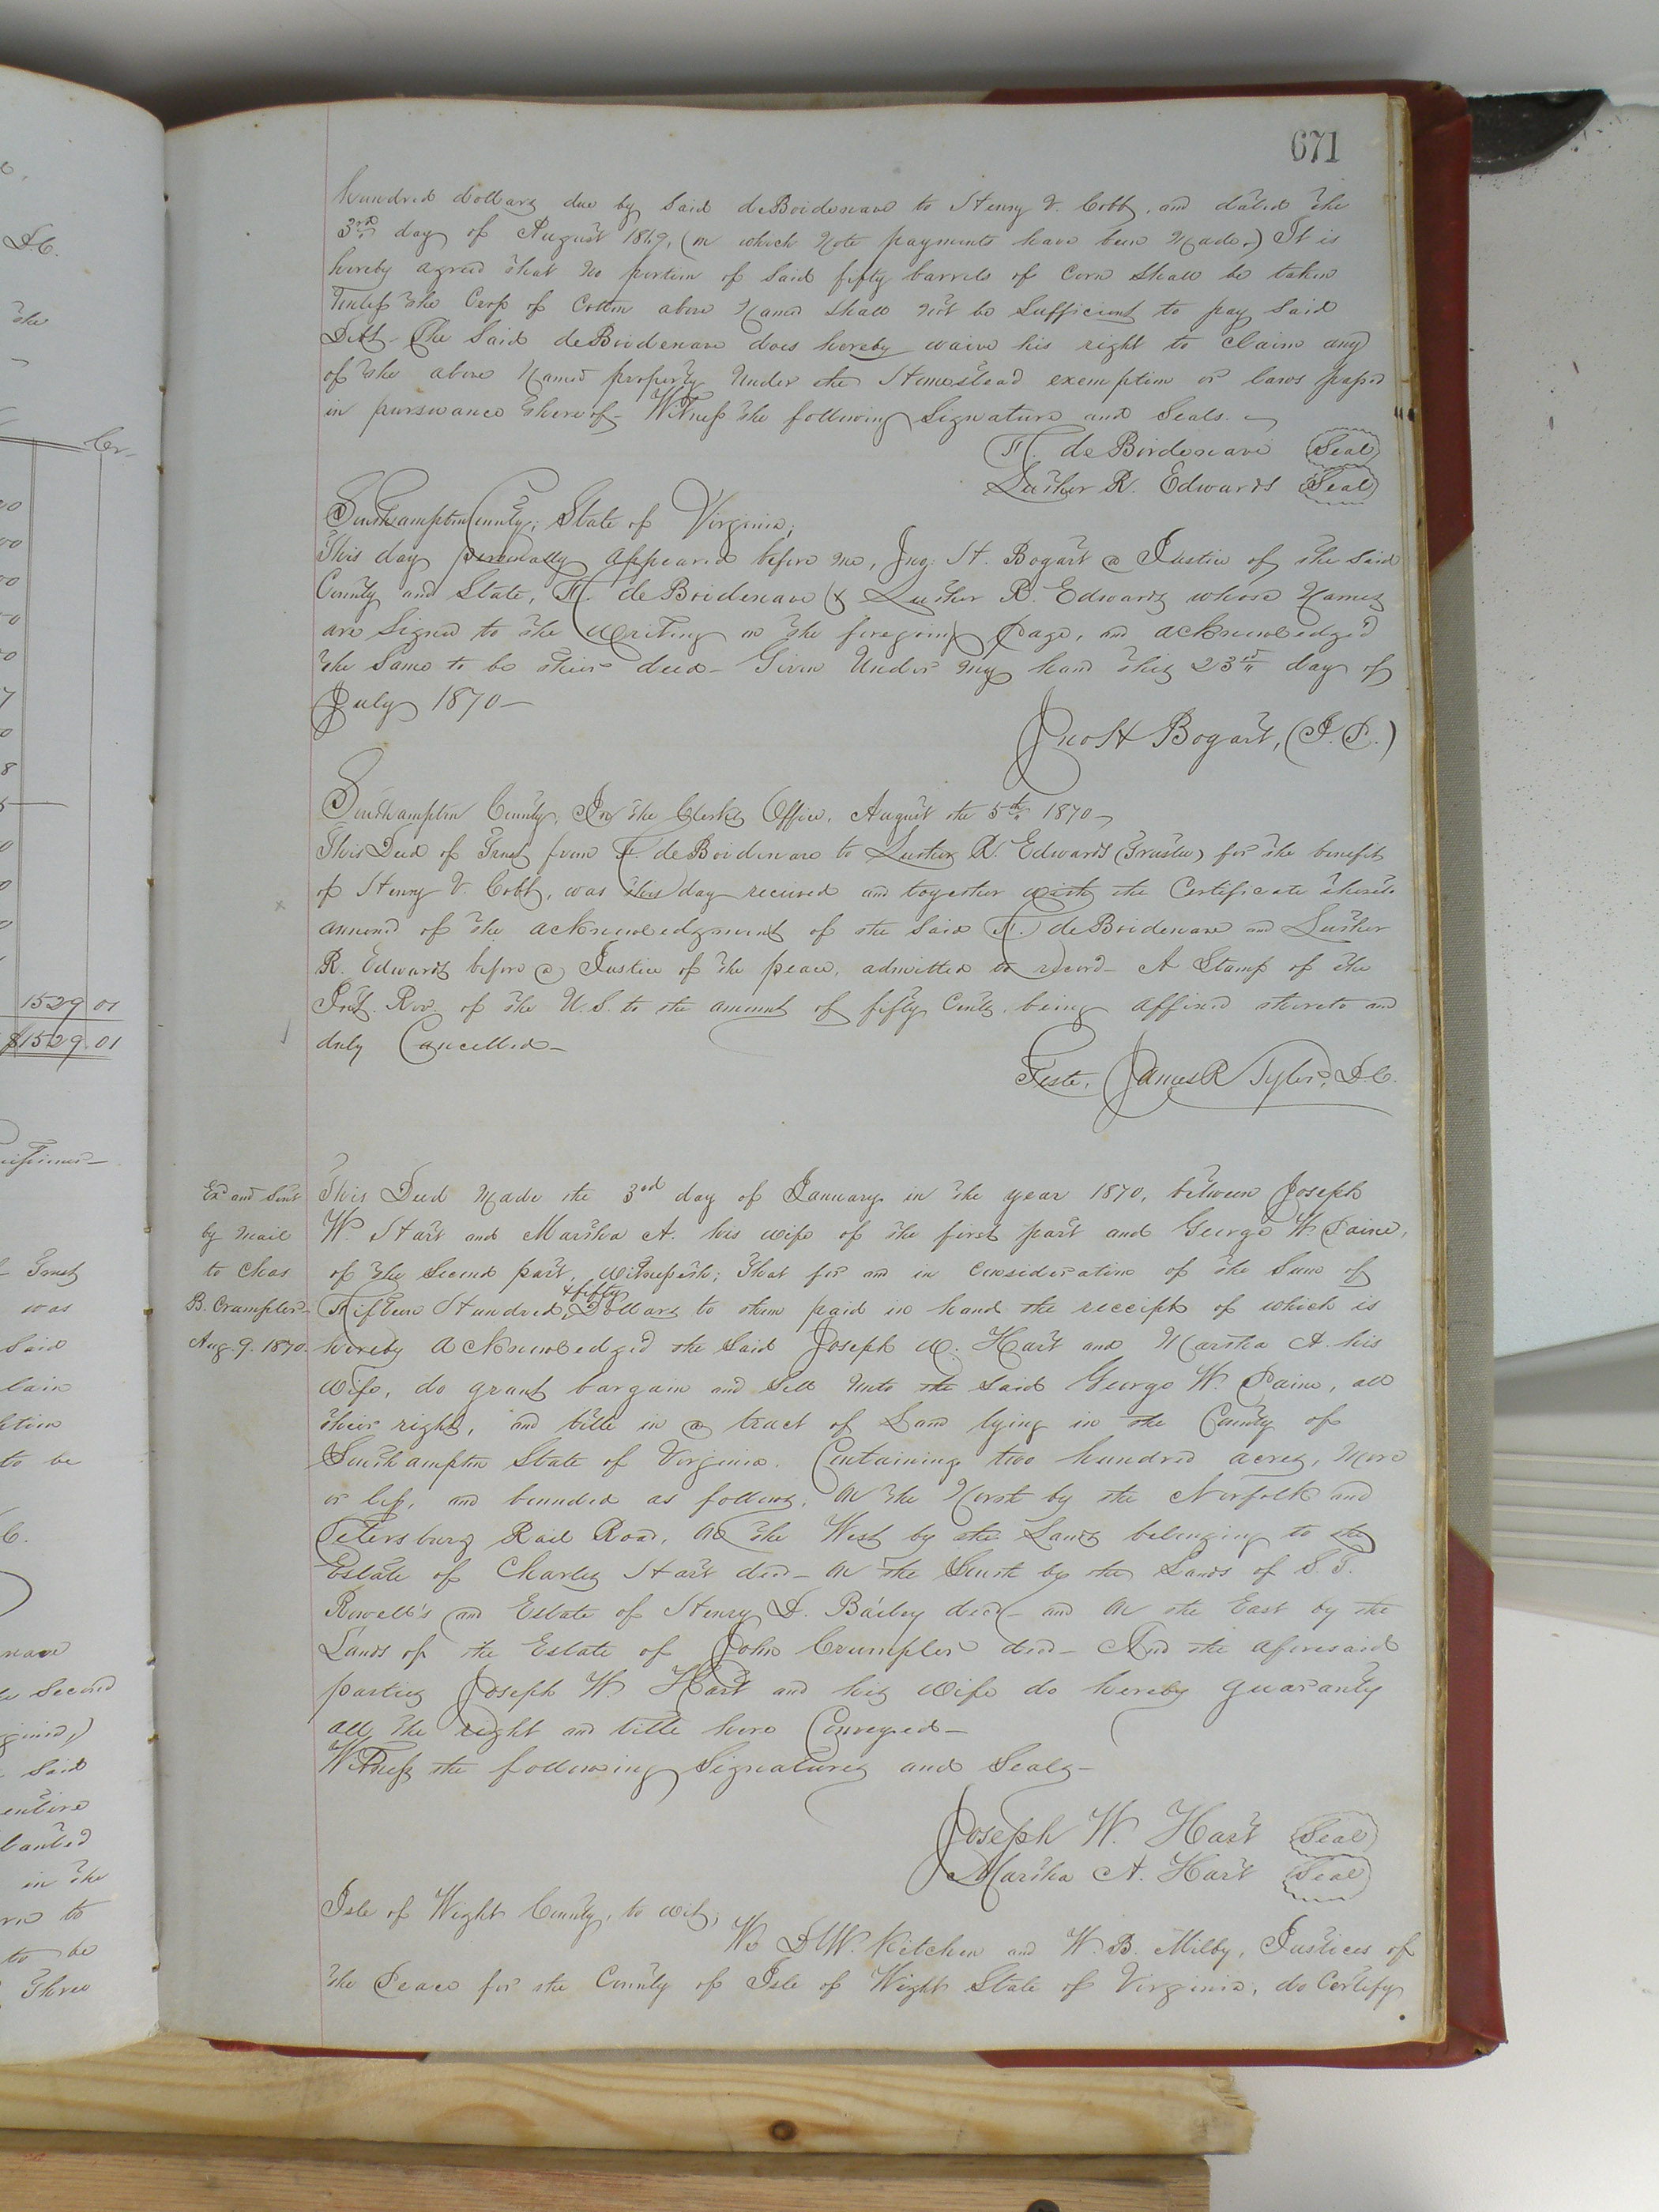 671
hundred dollars due by Said deBoidenave to Henry V. Cobb, and dated the
3rd day of August 1869, (on which Note payments have been Made.) It is
hereby agreed that No portion of Said fifty barrels of Corn Shall be taken
Unless the Crop of Cotton above Named Shall Not be Sufficient to pay Said
Debt. The Said deBoidenave does hereby waive his right to Claim any
of the above Named property Under the Homestead exemption or laws passed
in pursuance thereof— Witness the following Signature and Seals.
F. deBoidenave Seal
Luther R. Edwards Seal
Southampton County, State of Virginia,
This day personally appeared before me, Jno. H. Bogart a Justice of the Said
County and State, F. deBoidenave & Luther R. Edwards whose Names
are Signed to the Writing on the foregoing page, and acknowledged
the Same to be their deed— Given Under My hand this 23rd day of
July 1870—
Jno H Bogart, (J. P.)
Southampton County, In the Clerks Office, August the 5th 1870—
This Deed of Trust from F. deBoidenave to Luther R. Edwards (Trustee) for the benefit
of Henry V. Cobb, was this day received and together with the Certificate thereto
annexed of the acknowledgment of the Said F. deBoidenave and Luther
R. Edwards before a Justice of the peace, admitted to record— A Stamp of the
Int. Rev. of the U.S. to the amount of fifty Cents being affixed thereto and
duly Cancelled—
Teste, James R Tyler, D.C.
Exd and Sent
by Mail
to Chas
B. Crumpler—
Aug. 9. 1870.
This Deed Made the 3rd day of January in the year 1870, between Joseph
W. Hart and Martha A. his wife of the first part and George W. Paine,
of the Second part, Witnesseth; That for and in Consideration of the Sum of
Fifteen Hundred & fifty Dollars to them paid in hand the receipt of which is
hereby acknowledged the Said Joseph W. Hart and Martha A. his
Wife, do grant bargain and Sell Unto the Said George W. Paine, all
their right, and title in a tract of Land lying in the County of
Southampton State of Virginia. Containing two hundred acres, More
or less, and bounded as follows, On the North by the Norfolk and
Petersburg Rail Road, On the West by the Lands belonging to the
Estate of Charles Hart decd— On the South by the Lands of S. T.
Rowell's and Estate of Henry D. Bailey decd— and On the East by the
Lands of the Estate of John Crumpler decd— And the aforesaid
parties Joseph W. Hart and his Wife do hereby guaranty
all the right and title here Conveyed—
Witness the following Signatures and Seals—
Joseph W. Hart Seal
Martha A. Hart Seal
Isle of Wight County, to wit;
We D.W. Kitchen and W. B. Milby, Justices of
the Peace for the County of Isle of Wight State of Virginia, do Certify
D.C.
the
Cr—
1529 01
$1529.01
Trust
was
Said
to be
Second
Said
entire
in the
to
to be
Three